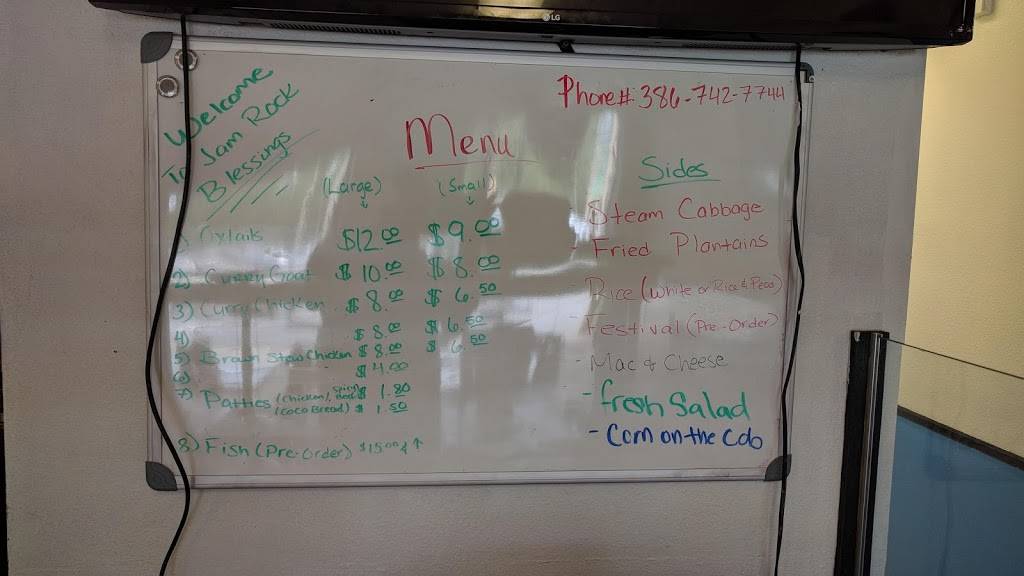 LG
Welcome
To Jam Rock
Blessings
Phone#: 386-742-7744
Menu
(Large) (Small)
1) Oxtails $12.00 $9.00
2) Curry Goat $10.00 $8.00
3) Curry Chicken $8.00 $6.50
4) $8.00 $6.50
5) Brown Stew Chicken $8.00 $6.50
6) $4.00
7) Patties (Chicken), Spicy Beef $1.80
(Coco Bread) $1.50
8) Fish (Pre-Order) $15.00 & ↑
Sides
- Steam Cabbage
- Fried Plantains
- Rice (White or Rice & Peas)
- Festival (Pre-Order)
- Mac & Cheese
- fresh Salad
- Corn on the Cob